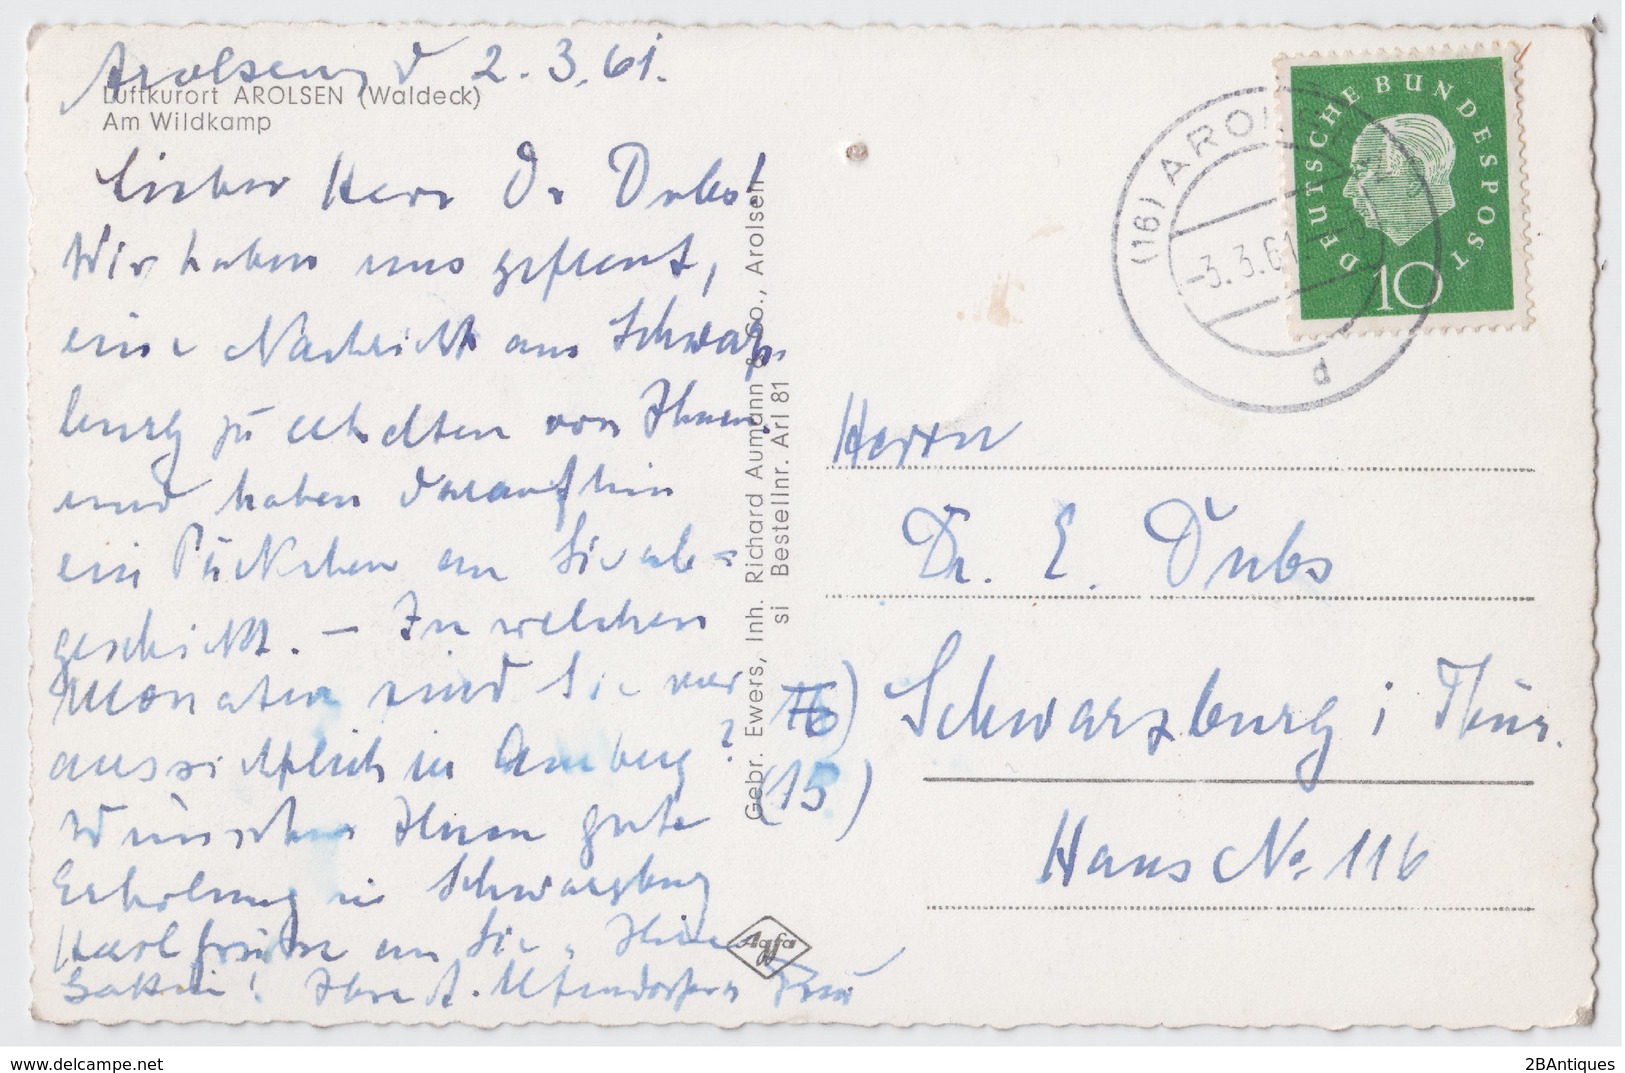 Arolsen, d 2.3.61.
Luftkurort AROLSEN (Waldeck)
Am Wildkamp
Lieber Herr Dr Dubs!
Wir haben uns gefreut,
eine Nachricht aus Schwarz-
burg zu erhalten von Ihnen
und haben daraufhin
ein Päckchen an Sie ab=
geschickt. — In welchen
Monaten sind Sie vor
aussichtlich in Amberg?
Wünschen Ihnen gute
Erholung in Schwarzburg
Herzl Grüsse an Sie u. Ihre
Gattin! Ihre A. Frau
Gebr. Ewers, Inh. Richard Aumann & Co., Arolsen
si Bestellnr. Arl 81
Agfa
DEUTSCHE BUNDESPOST
10
(16) AROLSEN
-3.3.61.
d
Herrn
Dr. E. Dubs
16) Schwarzburg i Thür.
(15)
Haus No. 116
Luftkurort
2BAntiques